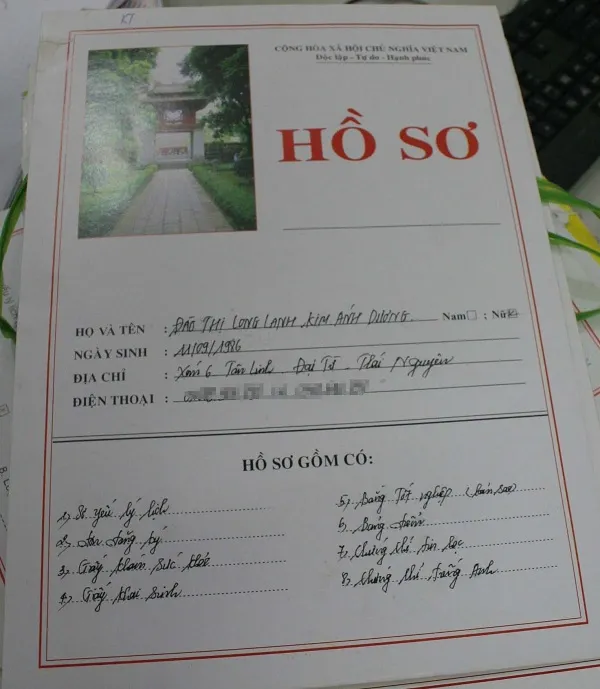 KT
CỘNG HÒA XÃ HỘI CHỦ NGHĨA VIỆT NAM
Độc lập - Tự do - Hạnh phúc
HỒ SƠ
HỌ VÀ TÊN : ĐÀO THỊ LONG LANH KIM ÁNH DƯƠNG Nam : Nữ
NGÀY SINH : 11/09/1986
ĐỊA CHỈ : Xóm 6 Tân Linh - Đại Từ - Thái Nguyên
ĐIỆN THOẠI :
HỒ SƠ GỒM CÓ:
1) Sơ yếu lý lịch
2) Đơn đăng ký
3) Giấy khám sức khỏe
4) Giấy khai sinh
5) Bằng Tốt nghiệp (bản sao)
6) Bảng điểm
7) Chứng chỉ tin học
8) Chứng chỉ tiếng Anh